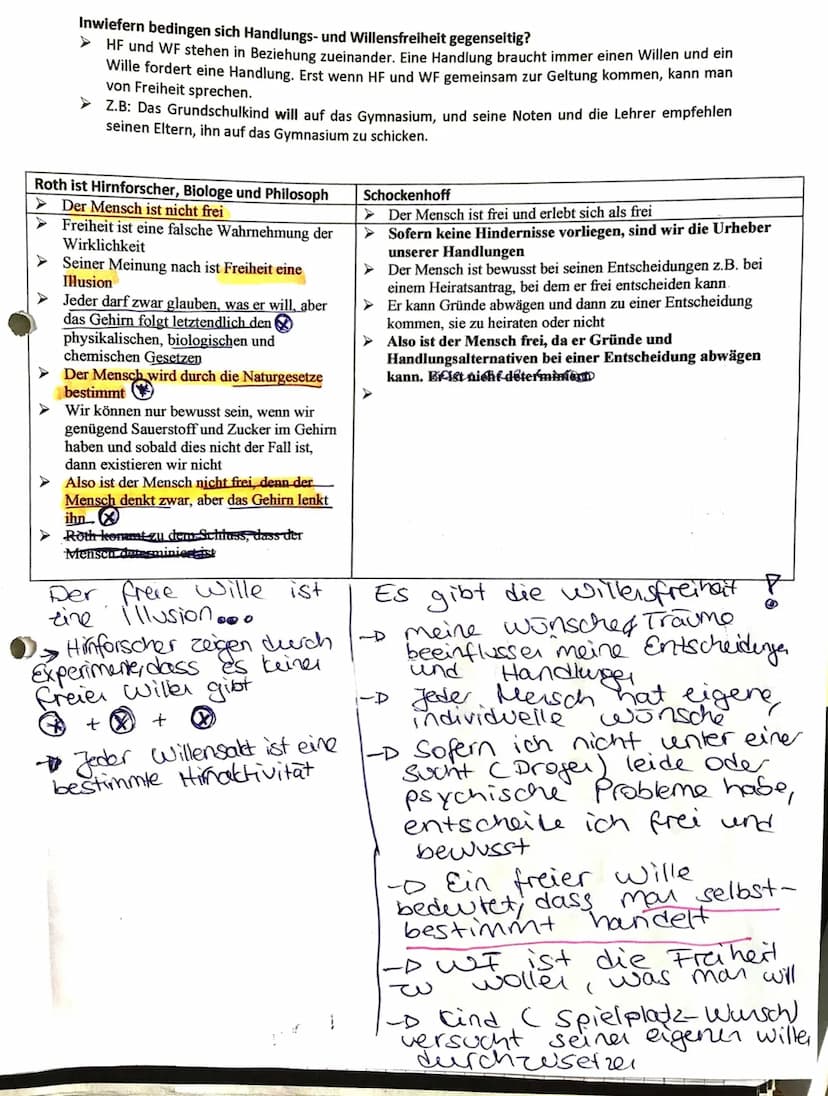 Inwiefern bedingen sich Handlungs- und Willensfreiheit gegenseitig?
➢ HF und WF stehen in Beziehung zueinander. Eine Handlung braucht immer einen Willen und ein
Wille fordert eine Handlung. Erst wenn HF und WF gemeinsam zur Geltung kommen, kann man
von Freiheit sprechen.
➢ Z.B: Das Grundschulkind will auf das Gymnasium, und seine Noten und die Lehrer empfehlen
seinen Eltern, ihn auf das Gymnasium zu schicken.
Roth ist Hirnforscher, Biologe und Philosoph
➢ Der Mensch ist nicht frei
➢ Freiheit ist eine falsche Wahrnehmung der
Wirklichkeit
➢ Seiner Meinung nach ist Freiheit eine
Illusion
➢ Jeder darf zwar glauben, was er will, aber
das Gehirn folgt letztendlich den
physikalischen, biologischen und
chemischen Gesetzen
➢ Der Mensch wird durch die Naturgesetze
bestimmt
➢ Wir können nur bewusst sein, wenn wir
genügend Sauerstoff und Zucker im Gehirn
haben und sobald dies nicht der Fall ist,
dann existieren wir nicht
➢ Also ist der Mensch nicht frei, denn der
Mensch denkt zwar, aber das Gehirn lenkt
ihn
➢ Roth kommt zu dem Schluss, dass der
Mensch determiniert ist
Schockenhoff
➢ Der Mensch ist frei und erlebt sich als frei
➢ Sofern keine Hindernisse vorliegen, sind wir die Urheber
unserer Handlungen
➢ Der Mensch ist bewusst bei seinen Entscheidungen z.B. bei
einem Heiratsantrag, bei dem er frei entscheiden kann
➢ Er kann Gründe abwägen und dann zu einer Entscheidung
kommen, sie zu heiraten oder nicht
➢ Also ist der Mensch frei, da er Gründe und
Handlungsalternativen bei einer Entscheidung abwägen
kann. Er ist nicht determiniert
➢
Der freie Wille ist
eine Illusion...
→ Hirnforscher zeigen durch
Experimente, dass es keinen
freien Willen gibt
+ +
→ Jeder Willensakt ist eine
bestimmte Hirnaktivität
Es gibt die Willensfreiheit!
→ meine Wünsche & Träume
beeinflussen meine Entscheidungen
und Handlungen
→ Jeder Mensch hat eigene,
individuelle Wünsche
→ Sofern ich nicht unter einer
Sucht (Drogen) leide oder
psychische Probleme habe,
entscheide ich frei und
bewusst
→ Ein freier Wille
bedeutet, dass man selbst-
bestimmt handelt
→ WF ist die Freiheit
zu wollen, was man will
→ Kind (Spielplatz-Wunsch)
versucht seinen eigenen Willen
durchzusetzen